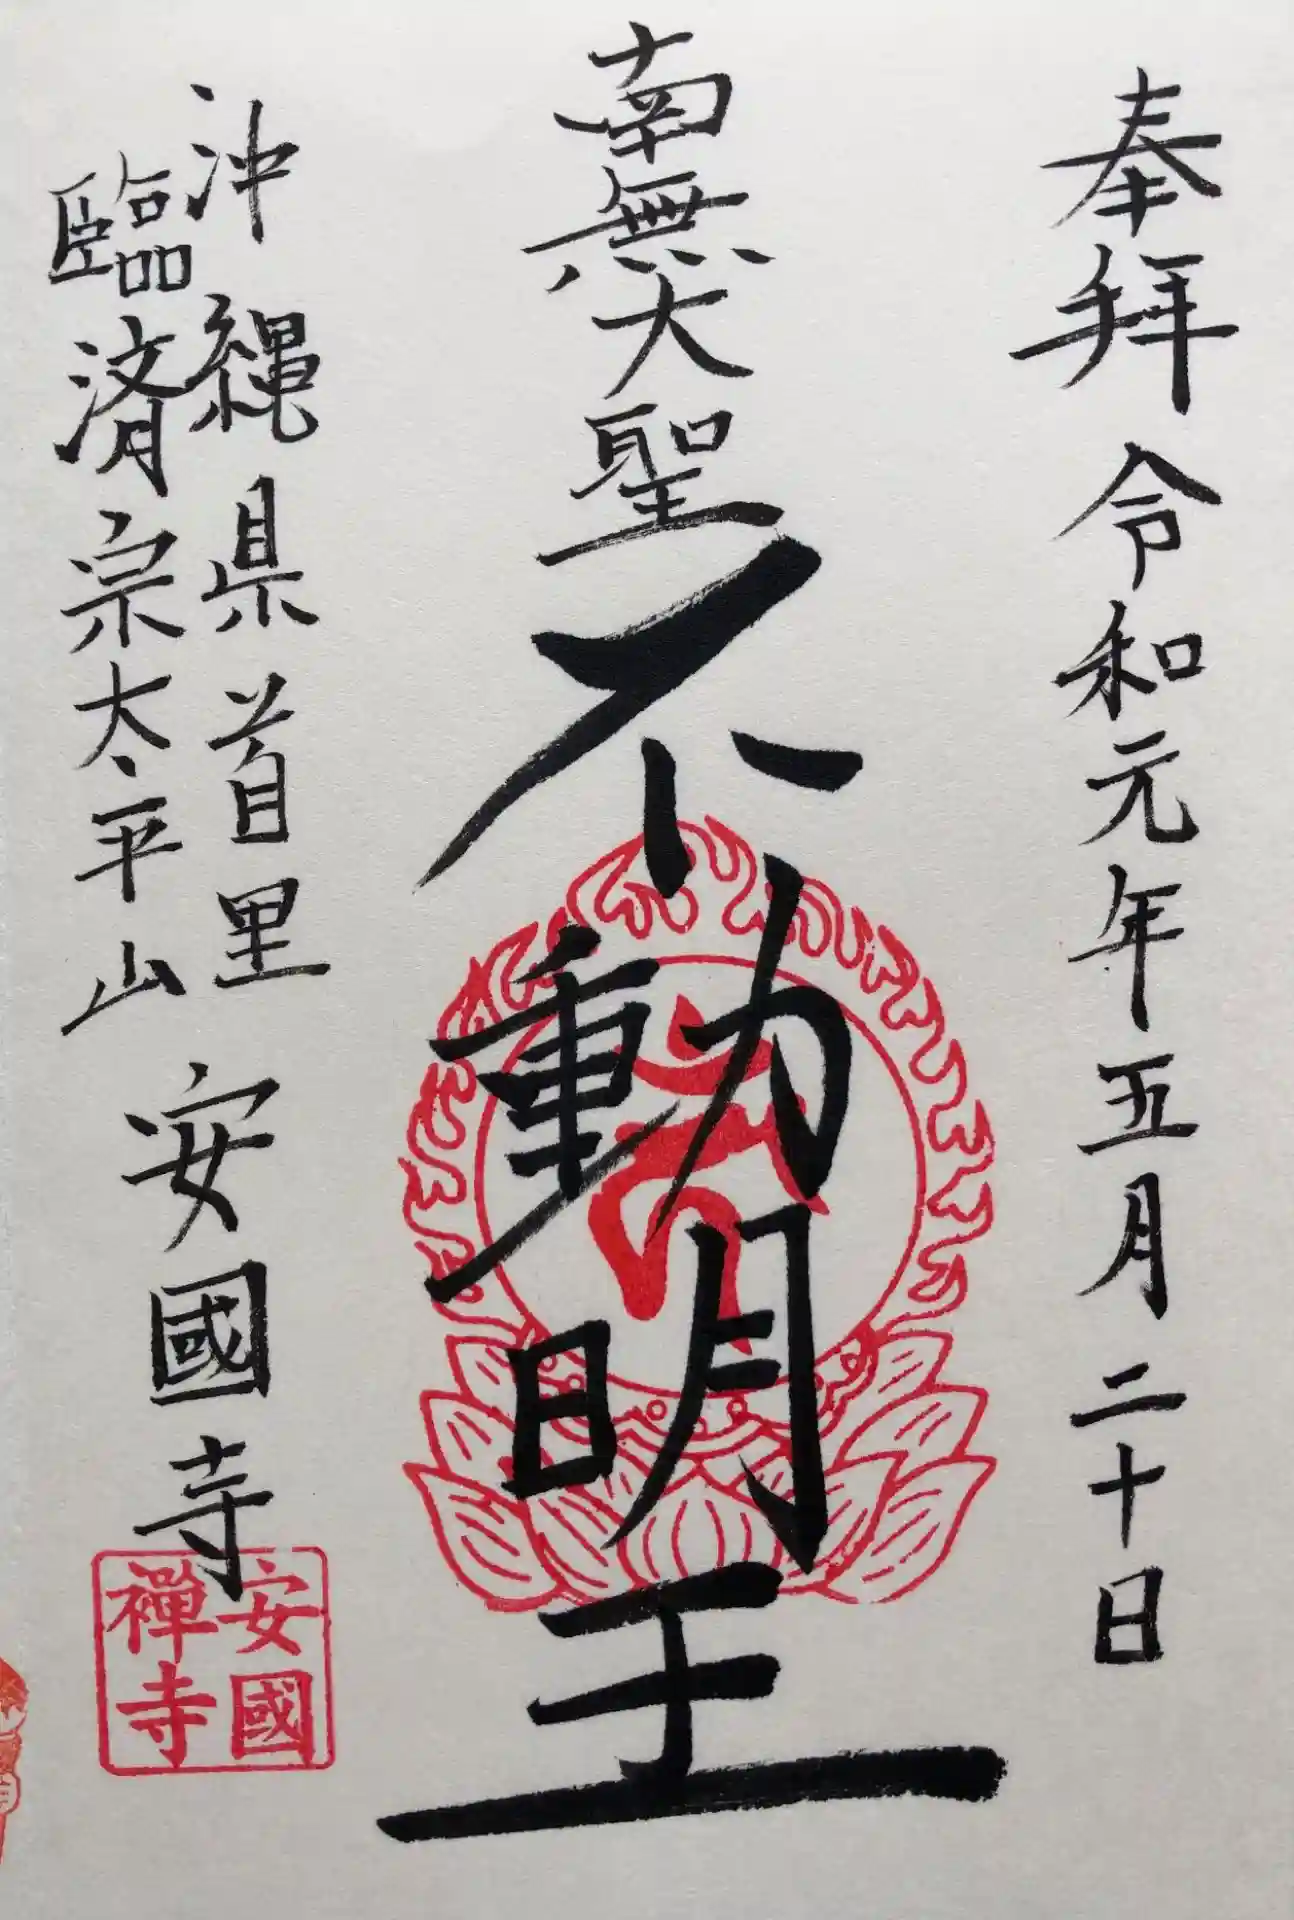 奉拝 令和元年五月二十日
南無大聖不動明王
沖縄県首里
臨済宗太平山
安國寺
安國
禅寺